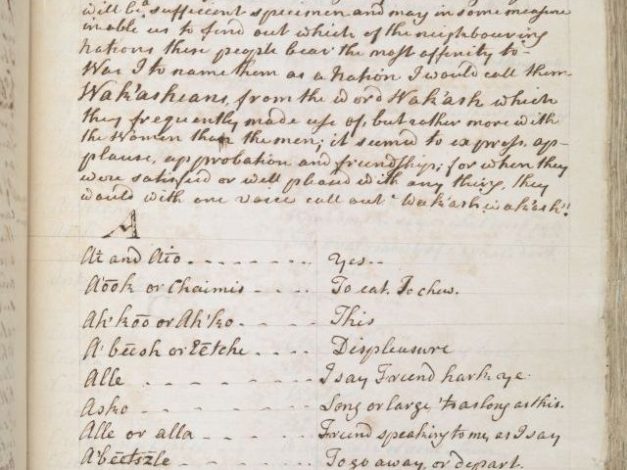 will be a sufficcent specimen and may in some measure
inable us to find out which of the neighbouring
nations these people bear the most affinity to
Was I to name them as a nation I would call them
Wak'ashians, from the word Wak'ash which
they frequently made use of, but rather more with
the Women than the men; it seemed to express ap-
plause, approbation and friendship; for when they
were satisfied or well pleased with any thing, they
would with one voice call out Wak'ash wak'ash!!
A
Ai and Aio - - - - - Yes - -
A'ook or Chaimis - - - - To eat. To chew.
Ah'koo or Ah'ko - - - - This
A'beesh or Eetche - - - - Displeasure
Alle - - - - - - I say Friend hark ye
Asko - - - - - Long or large, 'tas long as this.
Alle or alla - - - - Friend speaking to me, as I say
- - - - To go away, or depart.